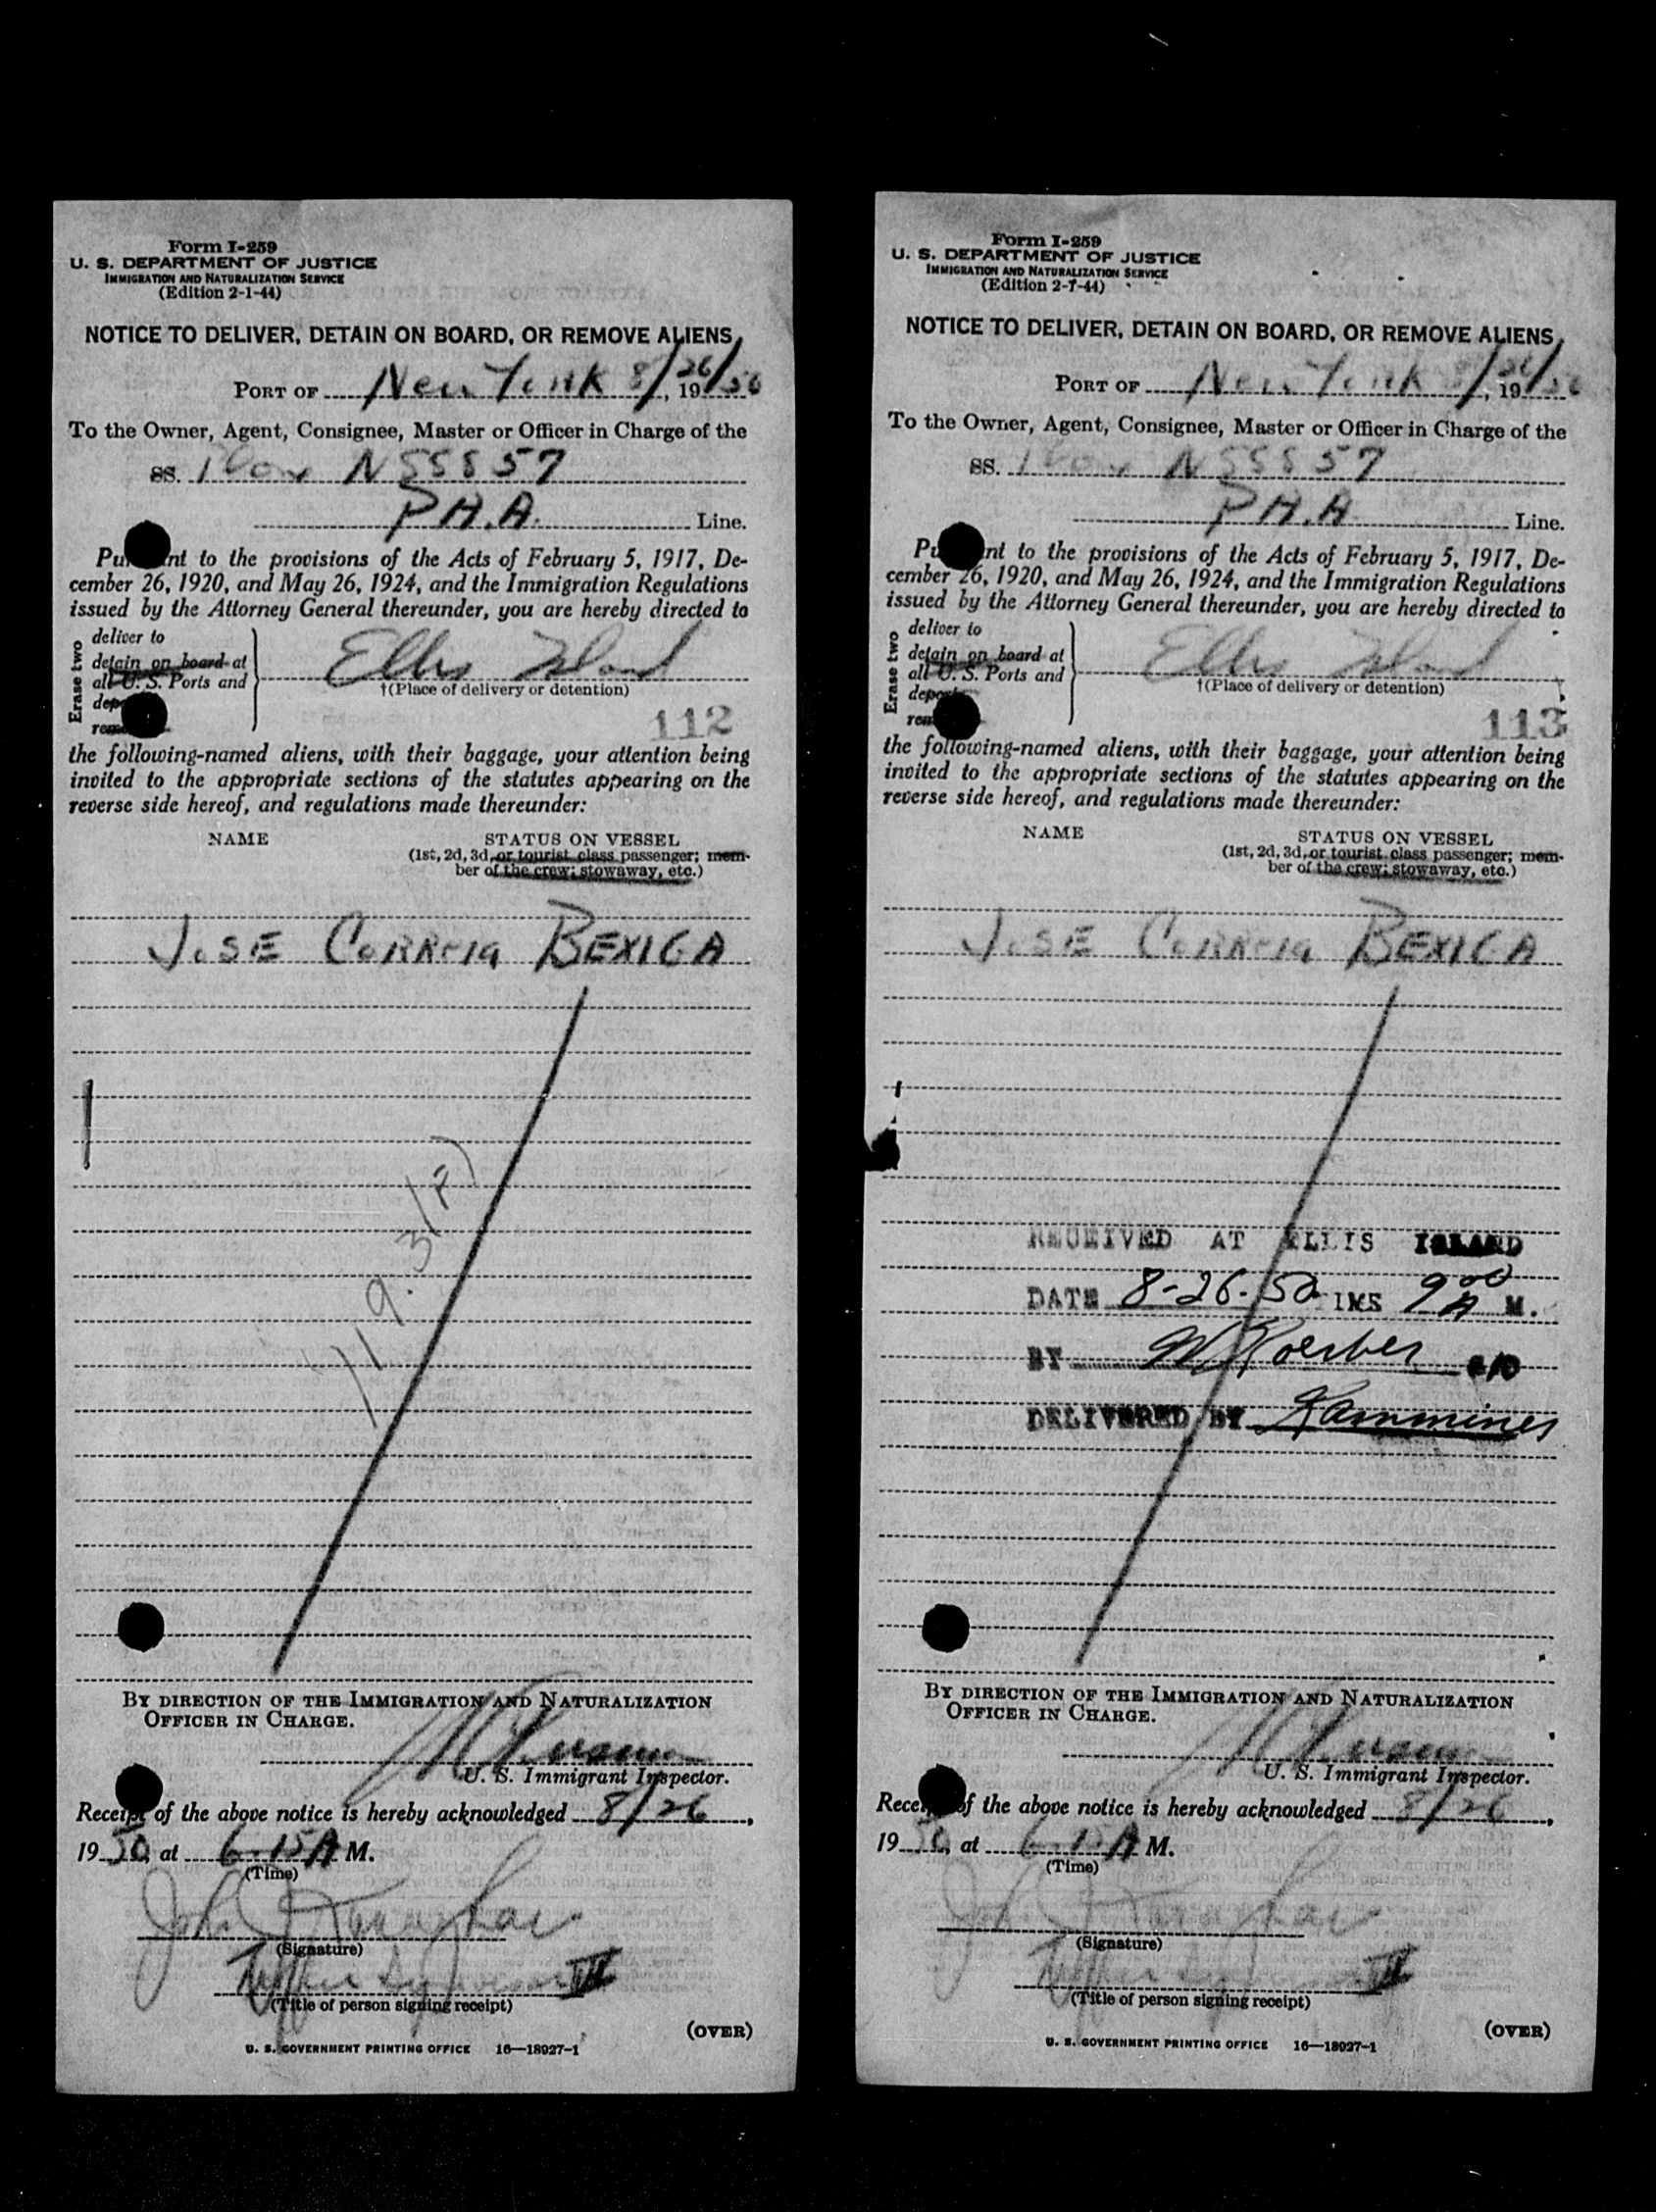 Form I-259
U. S. DEPARTMENT OF JUSTICE
IMMIGRATION AND NATURALIZATION SERVICE
(Edition 2-1-44)
NOTICE TO DELIVER, DETAIN ON BOARD, OR REMOVE ALIENS
PORT OF New York 8/26/, 1950
To the Owner, Agent, Consignee, Master or Officer in Charge of the
SS. N 88857
P.A.A. Line.
Pu nt to the provisions of the Acts of February 5, 1917, De-
cember 26, 1920, and May 26, 1924, and the Immigration Regulations
issued by the Attorney General thereunder, you are hereby directed to
Erase two
deliver to
detain on board at
all U. S. Ports and
Ellis Island
†(Place of delivery or detention)
112
the following-named aliens, with their baggage, your attention being
invited to the appropriate sections of the statutes appearing on the
reverse side hereof, and regulations made thereunder:
NAME STATUS ON VESSEL
(1st, 2d, 3d, or tourist class passenger; mem-
ber of the crew; stowaway, etc.)
JOSE CORREIA BEXIGA
BY DIRECTION OF THE IMMIGRATION AND NATURALIZATION
OFFICER IN CHARGE.
U. S. Immigrant Inspector.
Receipt of the above notice is hereby acknowledged 8/26,
1950, at 6:15 A M.
(Time)
John
(Signature)
(Title of person signing receipt)
(OVER)
U. S. GOVERNMENT PRINTING OFFICE 16—18927-1
Form I-259
U. S. DEPARTMENT OF JUSTICE
IMMIGRATION AND NATURALIZATION SERVICE
(Edition 2-1-44)
NOTICE TO DELIVER, DETAIN ON BOARD, OR REMOVE ALIENS
PORT OF New York 8/26/, 1950
To the Owner, Agent, Consignee, Master or Officer in Charge of the
SS. N 88857
P.A.A. Line.
Pu nt to the provisions of the Acts of February 5, 1917, De-
cember 26, 1920, and May 26, 1924, and the Immigration Regulations
issued by the Attorney General thereunder, you are hereby directed to
Erase two
deliver to
detain on board at
all U. S. Ports and
Ellis Island
†(Place of delivery or detention)
113
the following-named aliens, with their baggage, your attention being
invited to the appropriate sections of the statutes appearing on the
reverse side hereof, and regulations made thereunder:
NAME STATUS ON VESSEL
(1st, 2d, 3d, or tourist class passenger; mem-
ber of the crew; stowaway, etc.)
JOSE CORREIA BEXIGA
RECEIVED AT ELLIS ISLAND
DATE 8-26-50 900 A M.
BY W Koerber
DELIVERED BY
BY DIRECTION OF THE IMMIGRATION AND NATURALIZATION
OFFICER IN CHARGE.
U. S. Immigrant Inspector.
Receipt of the above notice is hereby acknowledged 8/26,
1950, at 6:15 A M.
(Time)
John
(Signature)
(Title of person signing receipt)
(OVER)
U. S. GOVERNMENT PRINTING OFFICE 16—18927-1